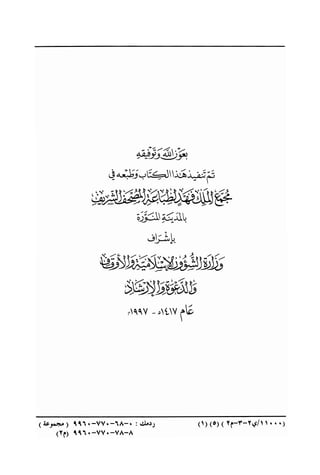 بعون الله وتوفيقه
تم تنفيذ هذا الكتاب وطبعه في
مجمع الملك فهد لطباعة المصحف الشريف
بالمدينة المنورة
بإشراف
وزارة الشؤون الإسلامية والأوقاف
والدعوة والإرشاد
عام ١٤١٧هـ - ١٩٩٧م
(١١٠٠٠/ي٢-٣-م٢) (٥) (١) ردمك : ٠-٦٨-٧٧٠-٩٩٦٠ ( مجموعة )
٨-٧٨-٧٧٠-٩٩٦٠ (م٢)